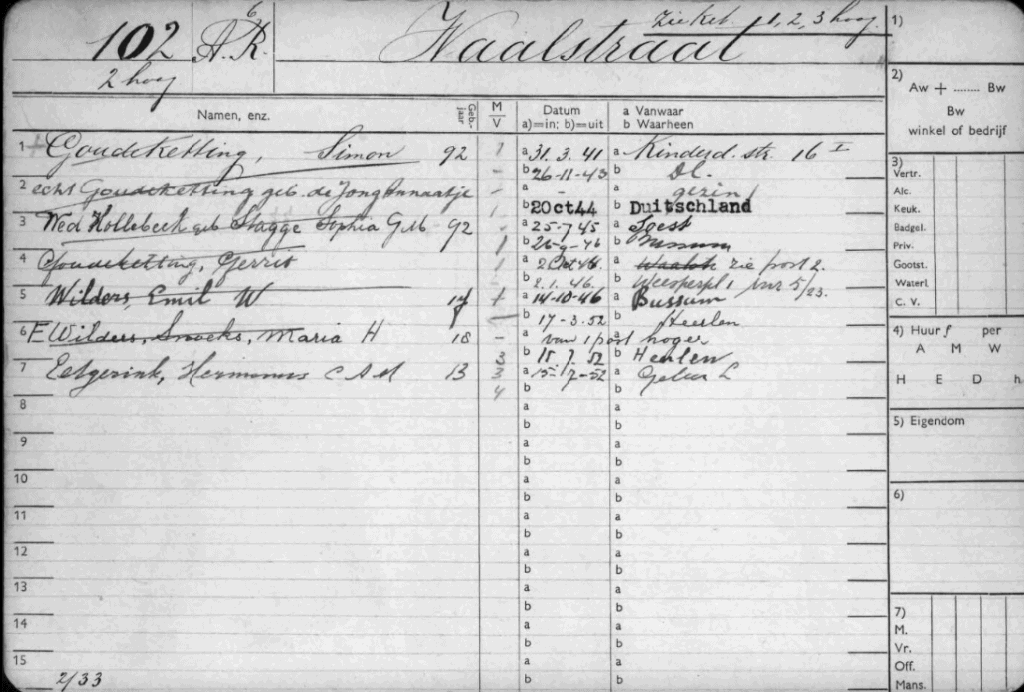 102 A.R. 6 Waalstraat 1, 2, 3 hoog
2 hoog
Namen, enz. Geb.-jaar M V Datum a)=in; b)=uit a Vanwaar b Waarheen
1 Goudeketting, Simon 92 1 a 31.3.41 a Kinderd. str. 16 I
- b 26-11-43 b
2 echt Goudeketting geb. de Jong Annaatje - a - a gezin
1 b 20 Oct 44 b Duitschland
3 Wed Hollebeek geb Stagge Sophia G M 92 - a 25-7 45 a Soest
1 b 26-9-46 b Bussum
4 Goudeketting, Gerrit 1 a 2 Oct 46. a zie post 2.
b 2.1.46. b 5/23.
5 Wilders, Emil W 17 1 a 14-10-46 a Bussum
b 17-3.52 b Heerlen
6 E Wilders, Snoeks, Maria H 18 - a van 1 post hoger
3 b 15.7.52 b Heerlen
7 Eetgerink, Hermanus C A M 13 3 a 15-7-52 a
4 b b
8 a a
b b
9 a a
b b
10 a a
b b
11 a a
b b
12 a a
b b
13 a a
b b
14 a a
b b
15 a a
b b
2/33
1)
2)
Aw + ........ Bw
Bw
winkel of bedrijf
3)
Vertr.
Alc.
Keuk.
Badgel.
Priv.
Gootst.
Waterl.
C. V.
4) Huur f per
A M W
H E D h.
5) Eigendom
6)
7)
M.
Vr.
Off.
Mans.